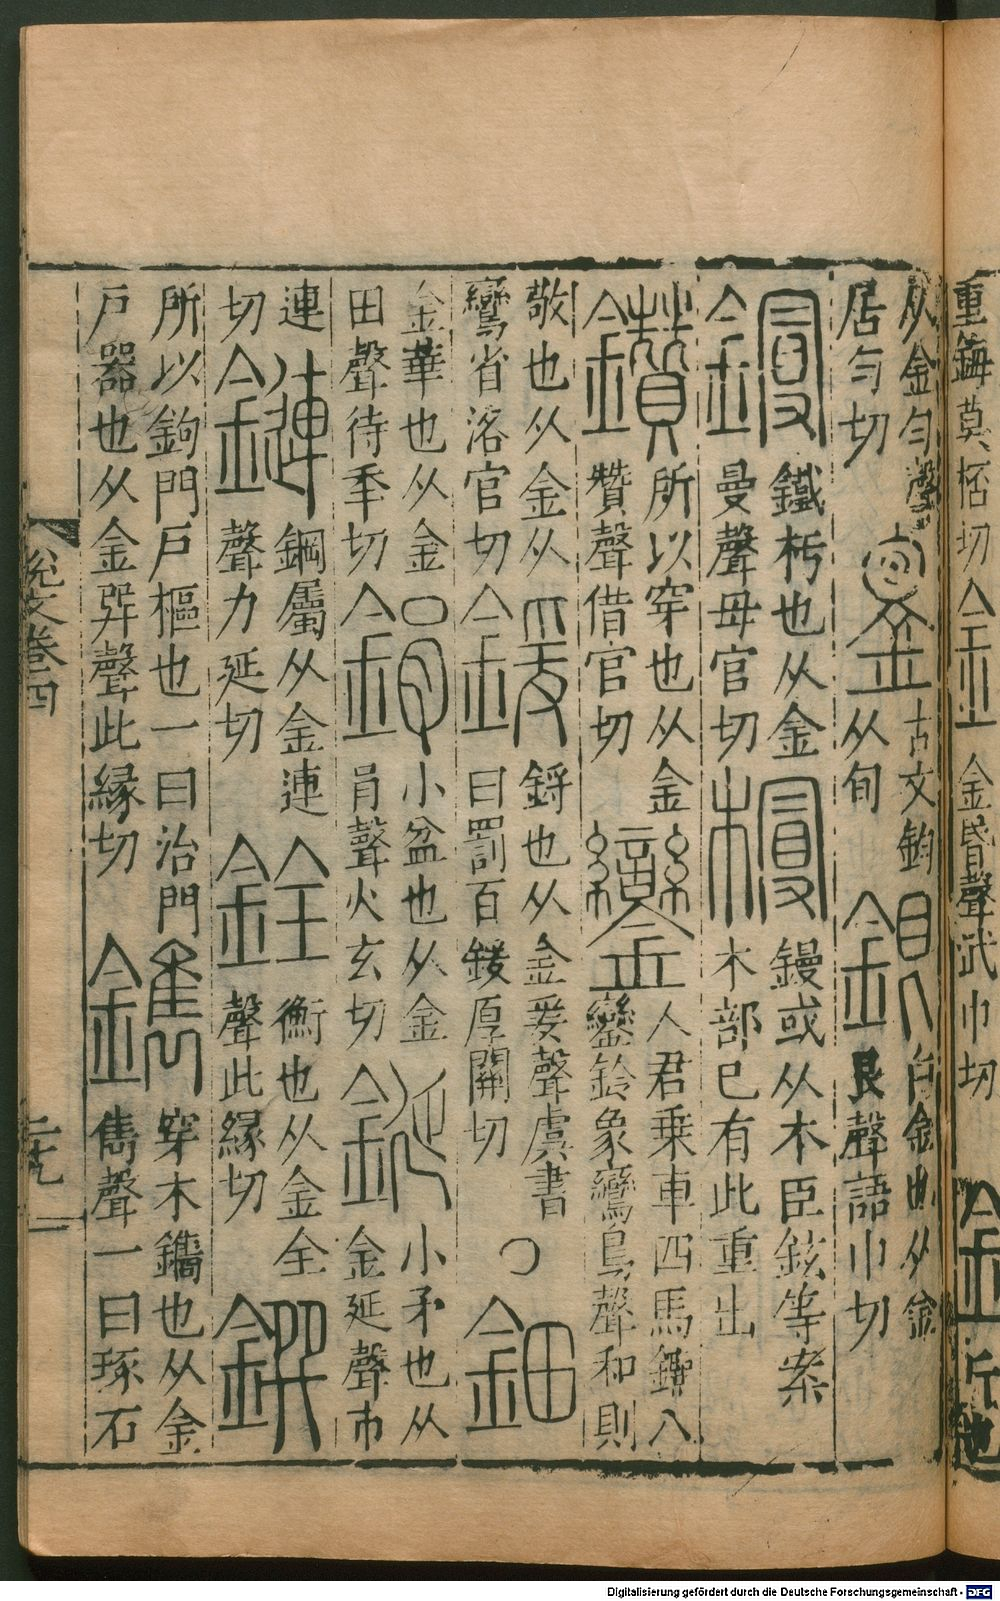 重鋂莫桮切
金昬聲武巾切
从金匀聲居匀切銞古文鈞从旬銀白金也从金艮聲語巾切
鏝鐵杇也从金曼聲母官切槾鏝或从木臣鉉等案木部已有此重出
鑽所以穿也从金贊聲借官切鑾人君乗車四馬鑣八鑾鈴象鸞鳥聲和則
敬也从金从鸞省洛官切鍰鋝也从金爰聲虞書曰罰百鍰厚關切〇鈿
金華也从金田聲待秊切鋗小盆也从金肙聲火玄切鋋小矛也从金延聲市
連切鏈鋼屬从金連聲力延切銓衡也从金全聲此縁切鐉
所以鉤門戸樞也一曰治門戸器也从金巽聲此縁切鐫穿木鐫也从金雋聲一曰琢石
說文卷四
二十九
Digitalisierung gefördert durch die Deutsche Forschungsgemeinschaft - DFG